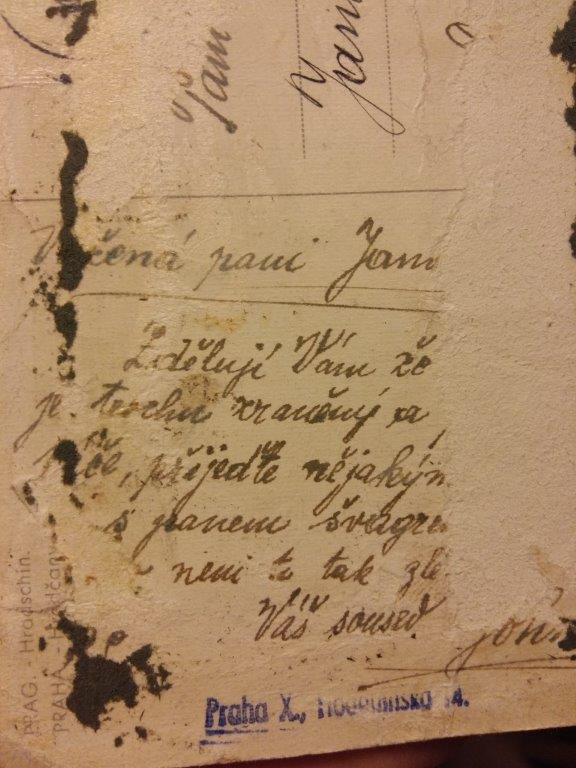 Vám
Jam
čená paní Jam
Zděluji Vám že
je trochu zraněný a
přijeďte nějakým
s panem švagre
není to tak zle
Váš soused
PRAG. - Hradschin.
PRAHA. - Hradčany
Praha X., 14.